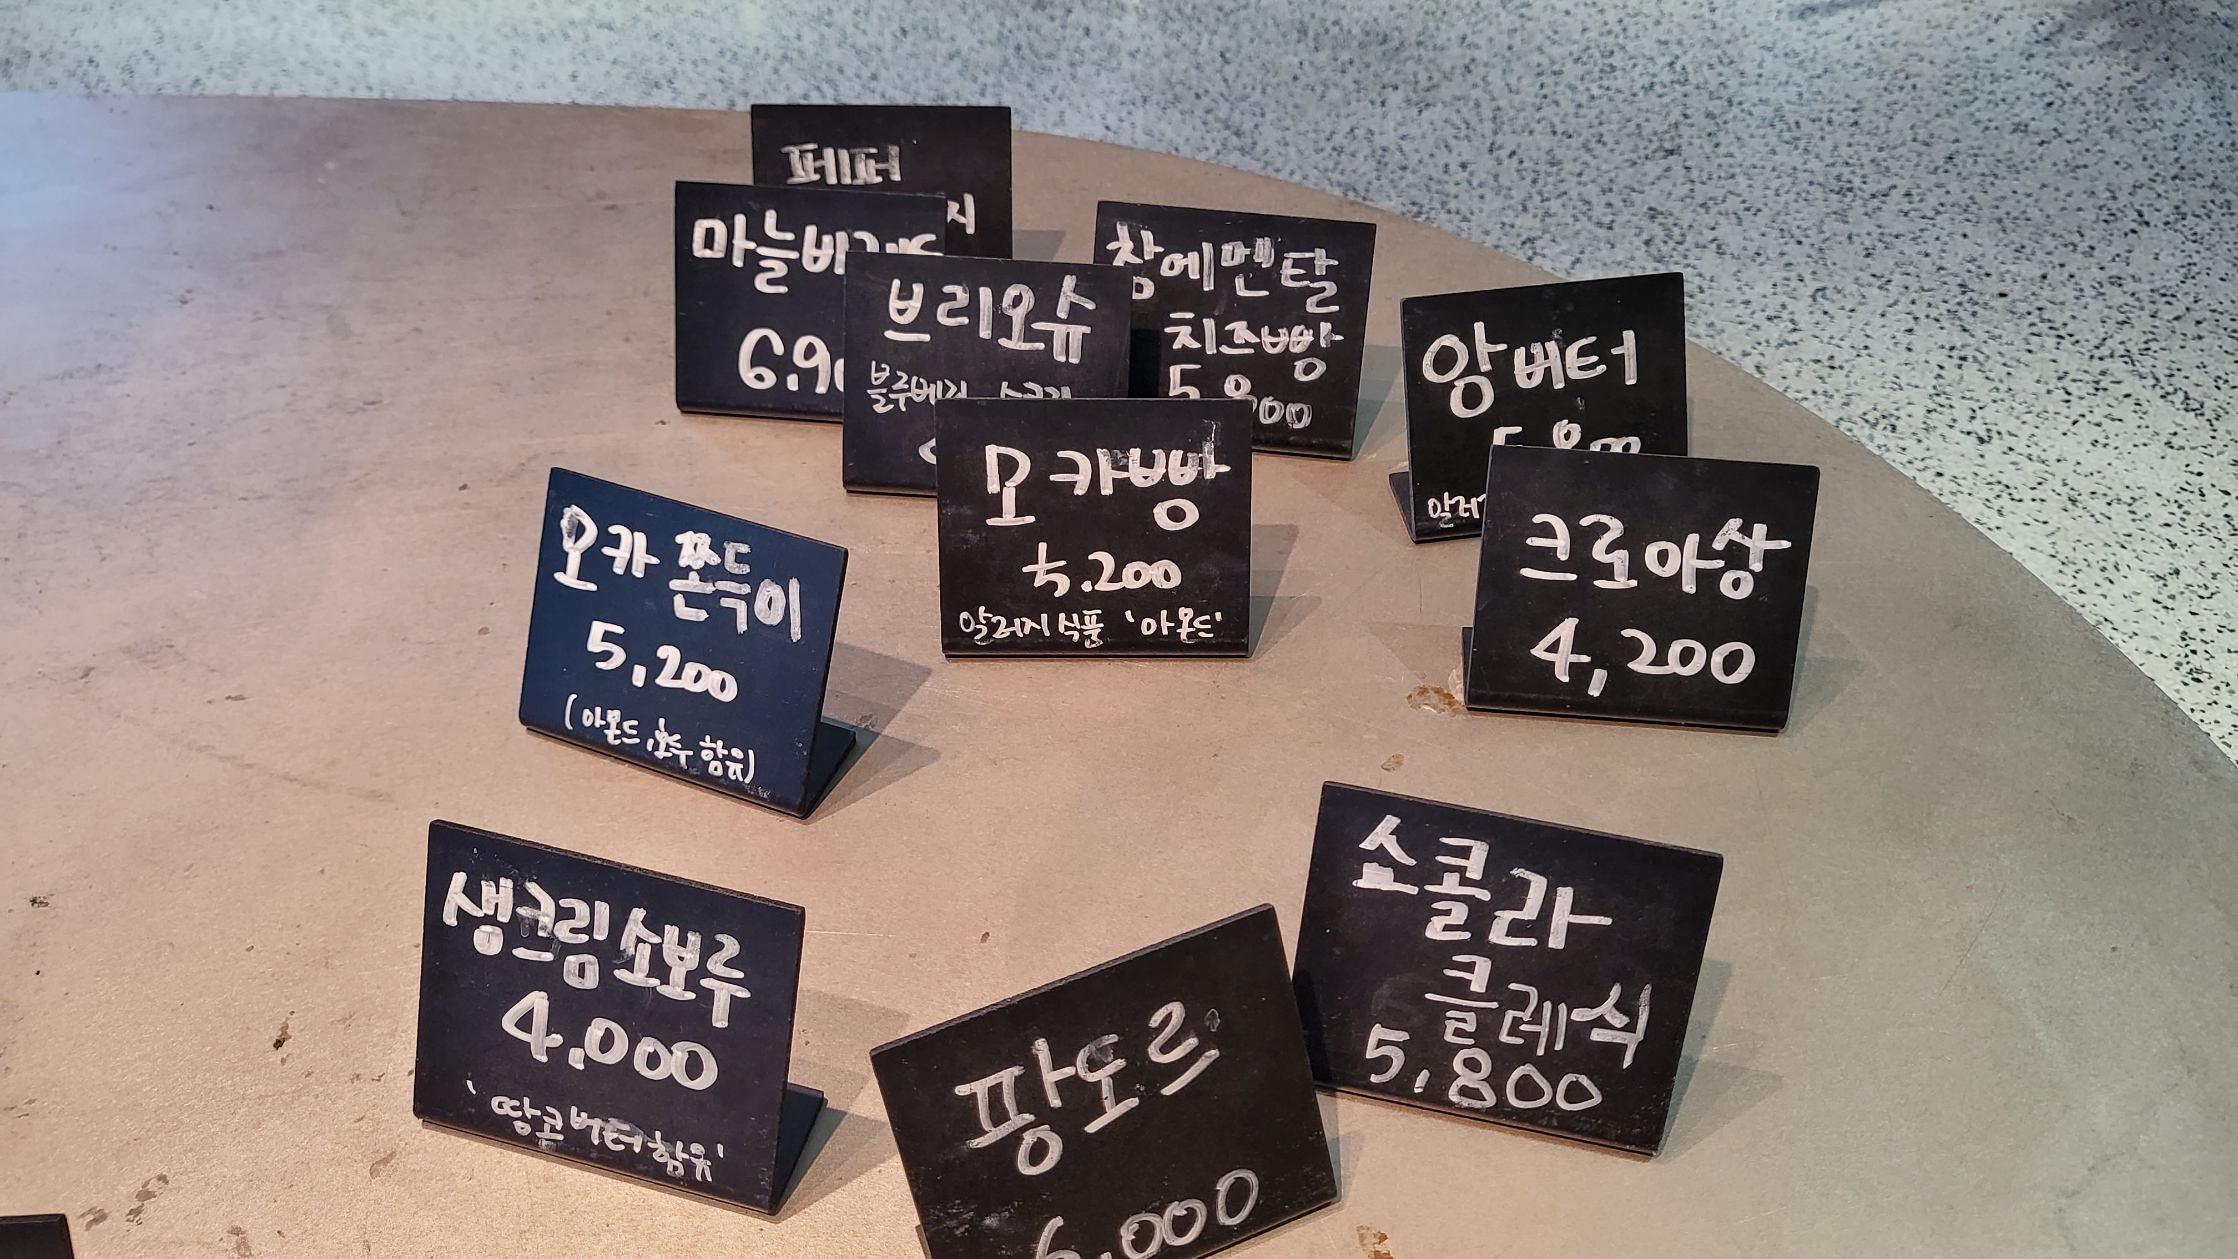 페퍼
마늘바게트
브리오슈
블루베리
참에멘탈
치즈빵
5,800
앙버터
5,800
모카빵
5.200
알러지식품 '아몬드'
크로아상
4,200
모카 쫀득이
5,200
(아몬드, 호두 함유)
생크림 소보루
4.000
'땅콩버터함유'
쇼콜라
클레식
5,800
팡도르
6.000